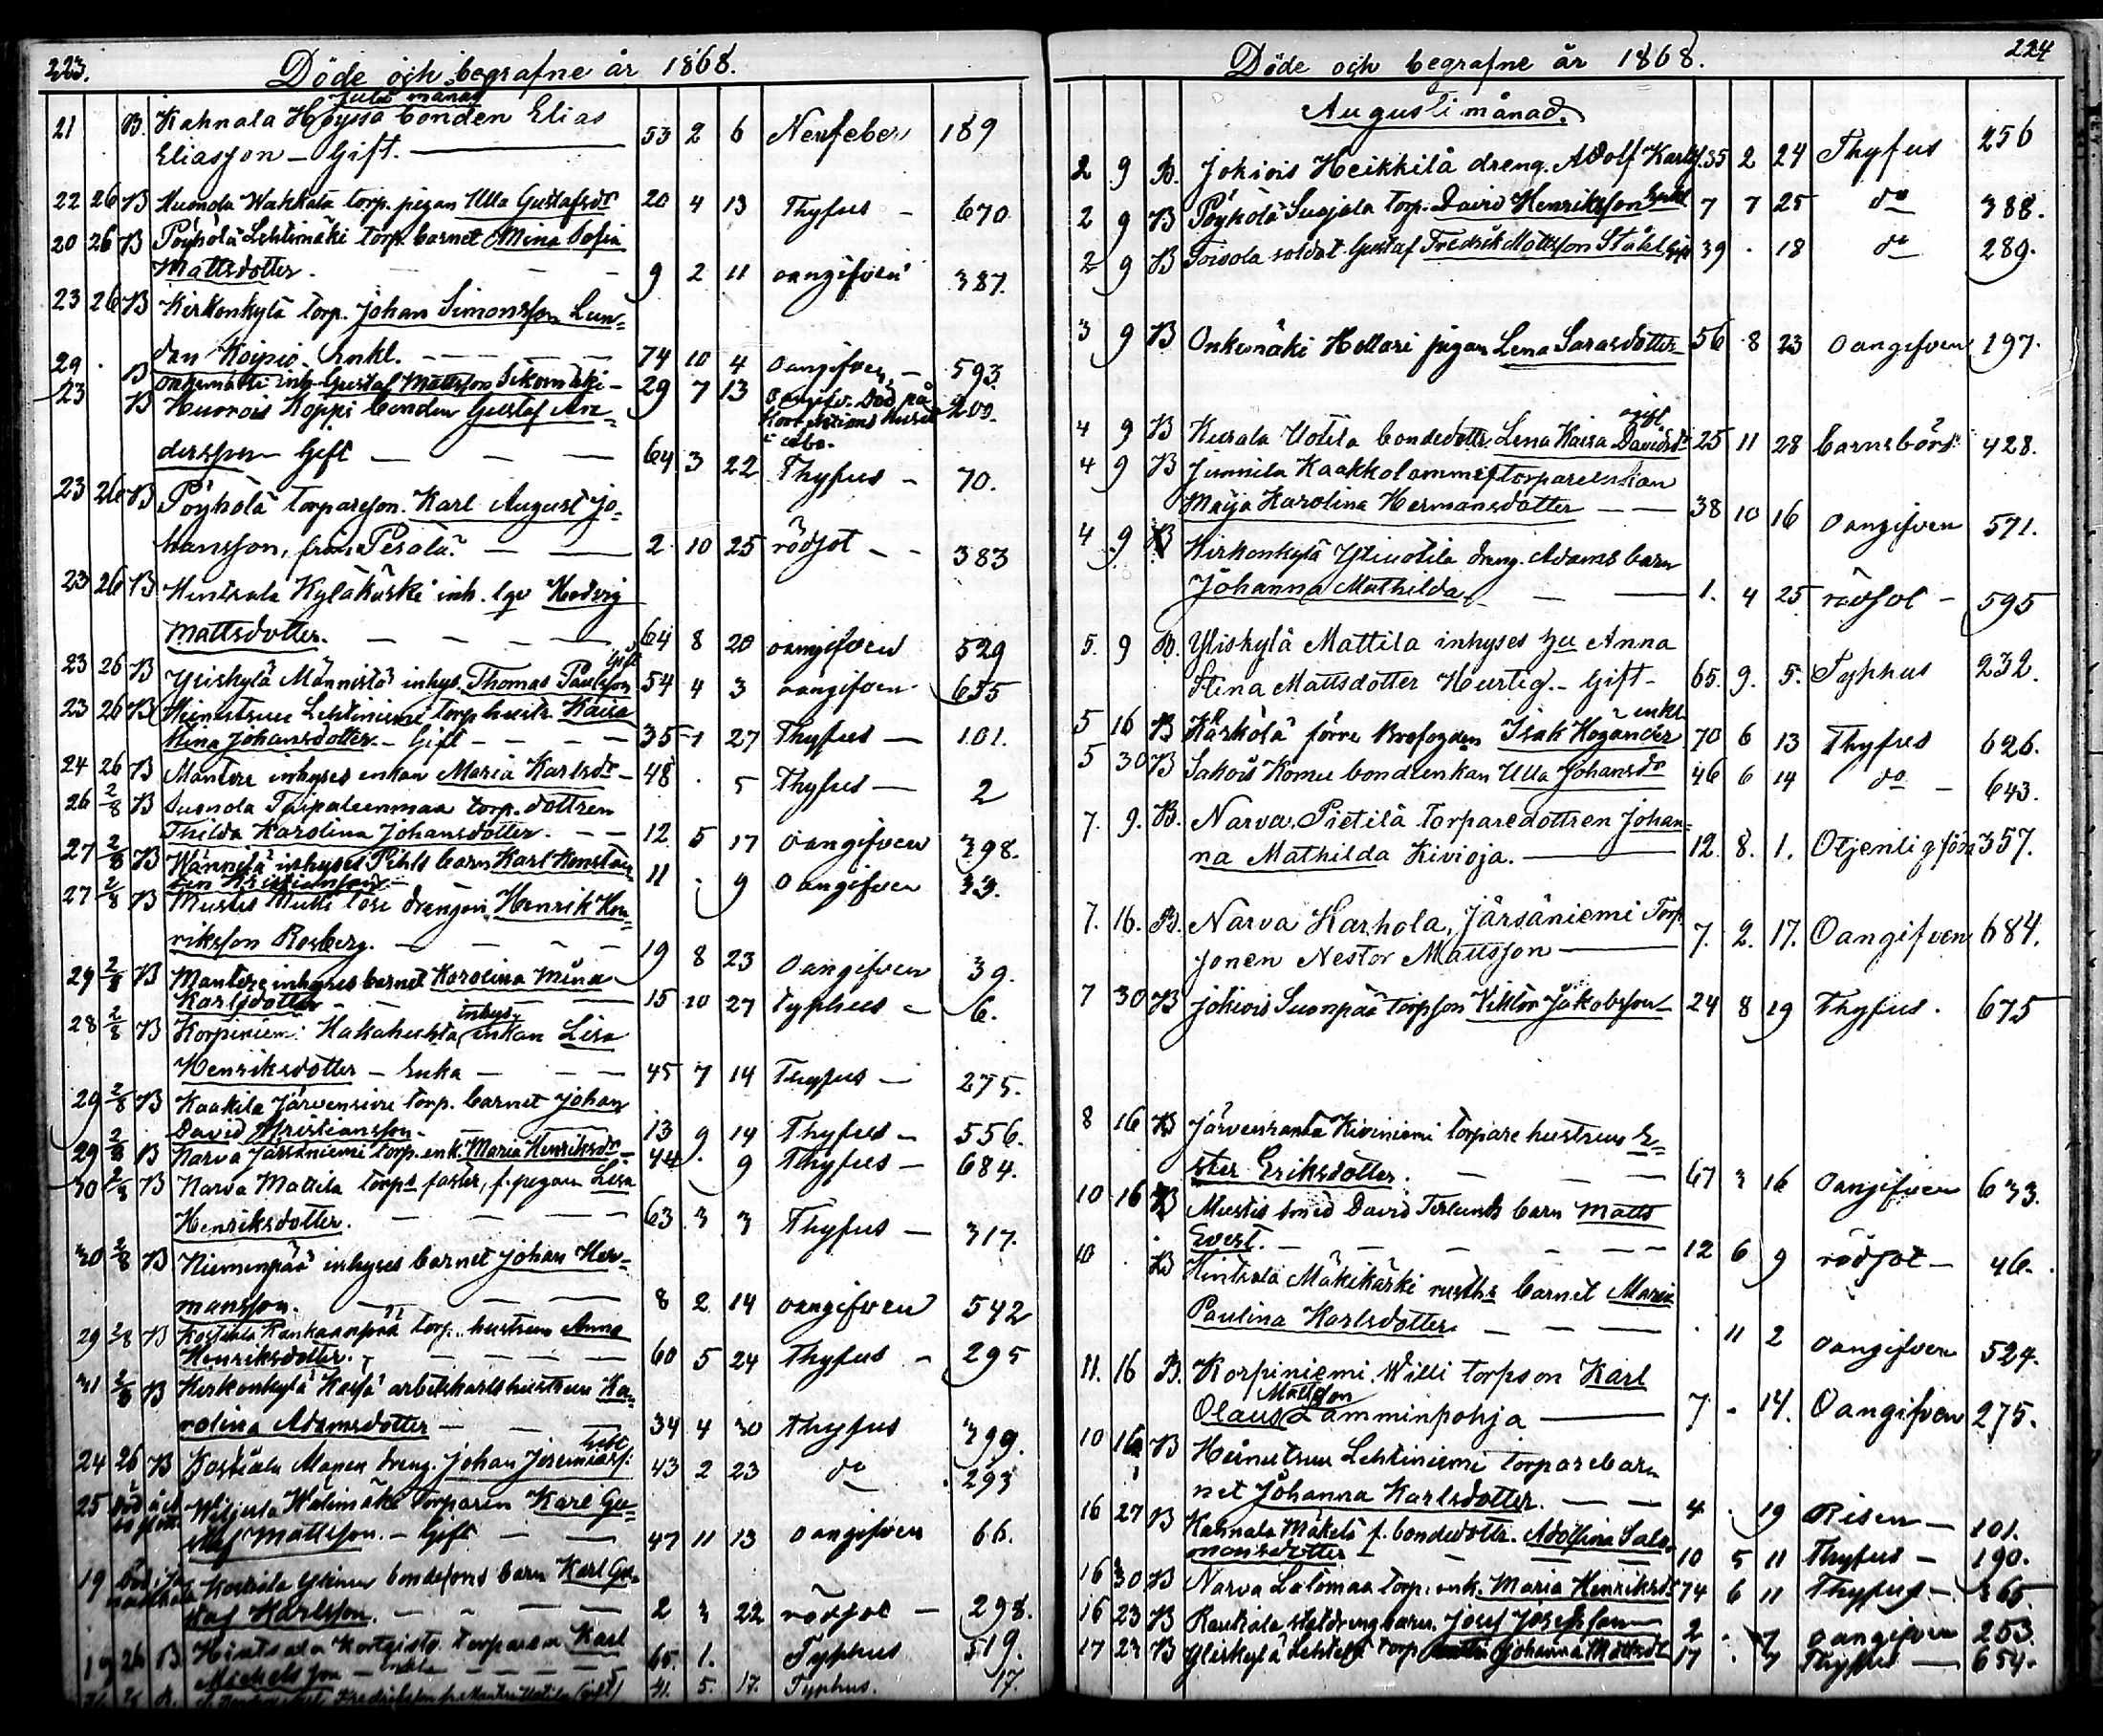 223.
Döde och begrafne år 1868.
Juli månad
21 B. Kahnala Höyssä bonden Elias
Eliasson – Gift. 53 2 6 Nerffeber 189
22 26 B Suonda Wahkala torp. pigan Ulla Gustafsdr 20 4 13 Thyfus – 670
20 26 B Pöyhölä Lehtimäki torp. barnet Mina Sofia
Mattsdotter. 9 2 11 oangifven 387.
23 26 B Kirkonkylä torp. Johan Simonsson Lun-
dan Koipio. Enkl. 74 10 4 oangifven – 593
29 B Onkemäki inh. Gustaf Mattsson 29 7 13 Oangifv. Död på 200.
23 B Huorois Koppi bonden Gustaf An-
dersson Gift 64 3 22 Thyfus – 70.
23 26 B Pöyhölä torpareson. Karl August Jo-
hansson, från Pesola. 2 10 25 rödsot – 383
23 26 B Hintsala Kyläkaski inh. Hedvig
Mattsdotter. 64 8 20 oangifven 529
23 26 B Yliskylä Männistö inhys. Thomas Paulsson Gift 54 4 3 oangifven 655
23 26 B Heinustuu Lehtiniemi torp. hustr. Kaisa
Stina Johansdotter. – Gift 35 1 27 Thyfus – 101.
24 26 B Mantere inhyses enkan Maria Karlsdr – 48 . 5 Thyfus – 2
26 2/8 B Suonola Taipaleenmaa torp. dottren
Thilda Karolina Johansdotter. 12 5 17 oangifven 398.
27 2/8 B Wännilä inhyses Pihls barn Karl Konstan-
tin 11 . 9 Oangifven 33.
27 2/8 B Mustis Mutti löse drengen Henrik Hen-
riksson Rosberg. 19 8 23 Oangifven 39.
29 2/8 B Mantere inhyses barnet Karolina Mina
Karlsdotter 15 10 27 Typhus – 6.
28 2/8 B Korpiniemi Hakahuhta inhys. enkan Lisa
Henriksdotter – Enka – 45 7 14 Thyfus – 275.
29 2/8 B Kaakila Järvensivu torp. barnet Johan
David Kristiansson. 13 9 14 Thyfus – 556.
29 2/8 B Narva Järsäniemi torp. enk. Maria Henriksdr – 44 . 9 Thyfus – 684.
30 2/8 B Narva Mattila torps faster, f. pigan Lisa
Henriksdotter. 63 3 3 Thyfus – 317.
30 2/8 B Niemenpää inhyses barnet Johan Her-
mansson. 8 2 14 oangifven 542
29 2/8 B Kostiala Rankaanpää torp. hustrun Anna
Henriksdotter. 60 5 24 Thyfus – 295
31 2/8 B Kirkonkylä Kaifä arbetskarlshustrun Ka-
rolina Adamsdotter 34 4 30 Thyfus 399.
24 26 B Kostiala Mapen dreng. Johan Jeremiass: 43 2 23 do 293
25 Wiljusta Wälimäki torparen Karl Gu-
staf Mattsson. – Gift 47 11 13 oangifven 66.
19 Kostiala bondesons barn Karl Gu-
staf Karlsson. 2 3 22 rödsot – 298.
19 26 B Hintsala torparen Karl
Mickelsson – Enkl. 65. 1. Typhus 519.
41. 5. 17. Typhus. 17.
224
Döde och begrafne år 1868.
Augusti månad.
2 9 B. Jokiois Heikkilä dreng. Adolf Karlsf. 35 2 24 Thyfus 256
2 9 B Pöyhölä Sugjala torp. David Henriksson Enkl 7 7 25 do 388.
2 9 B Toivola soldat Gustaf Fredrik Mattsson Stål Gift 39 . 18 do 289.
3 9 B Onkemäki Hellari pigan Lena Sarasdotter 56 8 23 Oangifven 197.
4 9 B Keisala Uotila bondedottr. Lena Kaisa Davidsdr ogift 25 11 28 barnsbörd 428.
4 9 B Junnila Kaakkolammi torpareenkan
Maija Karolina Hermansdotter 38 10 16 Oangifven 571.
4 9 B Kirkonkylä Yliuotila dreng. Adams barn
Johanna Mathilda 1. 4 25 rödsot – 595
5. 9 B. Yliskylä Mattila inhyses hu Anna
Stina Mattsdotter Hurtig. – Gift – 65. 9. 5. Typhus 232.
5 16 B Karhola förre Brofogden Isak Hogander enkl 70 6 13 Thyfus 626.
5 30 B Sakois Komu bondenkan Ulla Johansdr 46 6 14 do – 643.
7. 9. B. Narva, Pietilä torparedottren Johan-
na Mathilda Kivioja. 12. 8. 1. Otjenlig föda 357.
7. 16. B. Narva Harhola, Järsäniemi Torp.
sonen Nestor Mattsson 7. 2. 17. Oangifven 684.
7 30 B Jokiois Suonpää torpson Viktor Jakobsson 24 8 19 Thyfus. 675
8 16 B Järvenranta Kiviniemi torpare hustrun E-
ster Eriksdotter. 67 3 16 Oangifven 633.
10 16 B Mustis smed David Terlunds barn Matts
Evert. 12 6 9 rödsot – 46.
10 . B Hintsala Mäkikaski rusth. barnet Maria
Paulina Karlsdotter . 11 2 oangifven 524.
11. 16 B. Korpiniemi Willi torpson Karl
Olaus Mattsson Lamminpohja 7 – 14. Oangifven 275.
10 16 B Heinustuu Lehtiniemi torparebar-
net Johanna Karlsdotter. 4 . 19 Risen – 101.
16 27 B Kannala Mäkelä f. bondedottr. Adolfina Salo-
monsdotter 10 5 11 Thyfus – 190.
16 30 B Narva Latomaa torp. enk. Maria Henriksdr 74 6 11 Thyfus – 365.
16 23 B Raukola statdreng barn. Josef Josefsson 2 . 7 oangifven 253.
17 23 B Yliskylä torp. Johanna Mattsdr 17 . 7 Thyfus – 654.